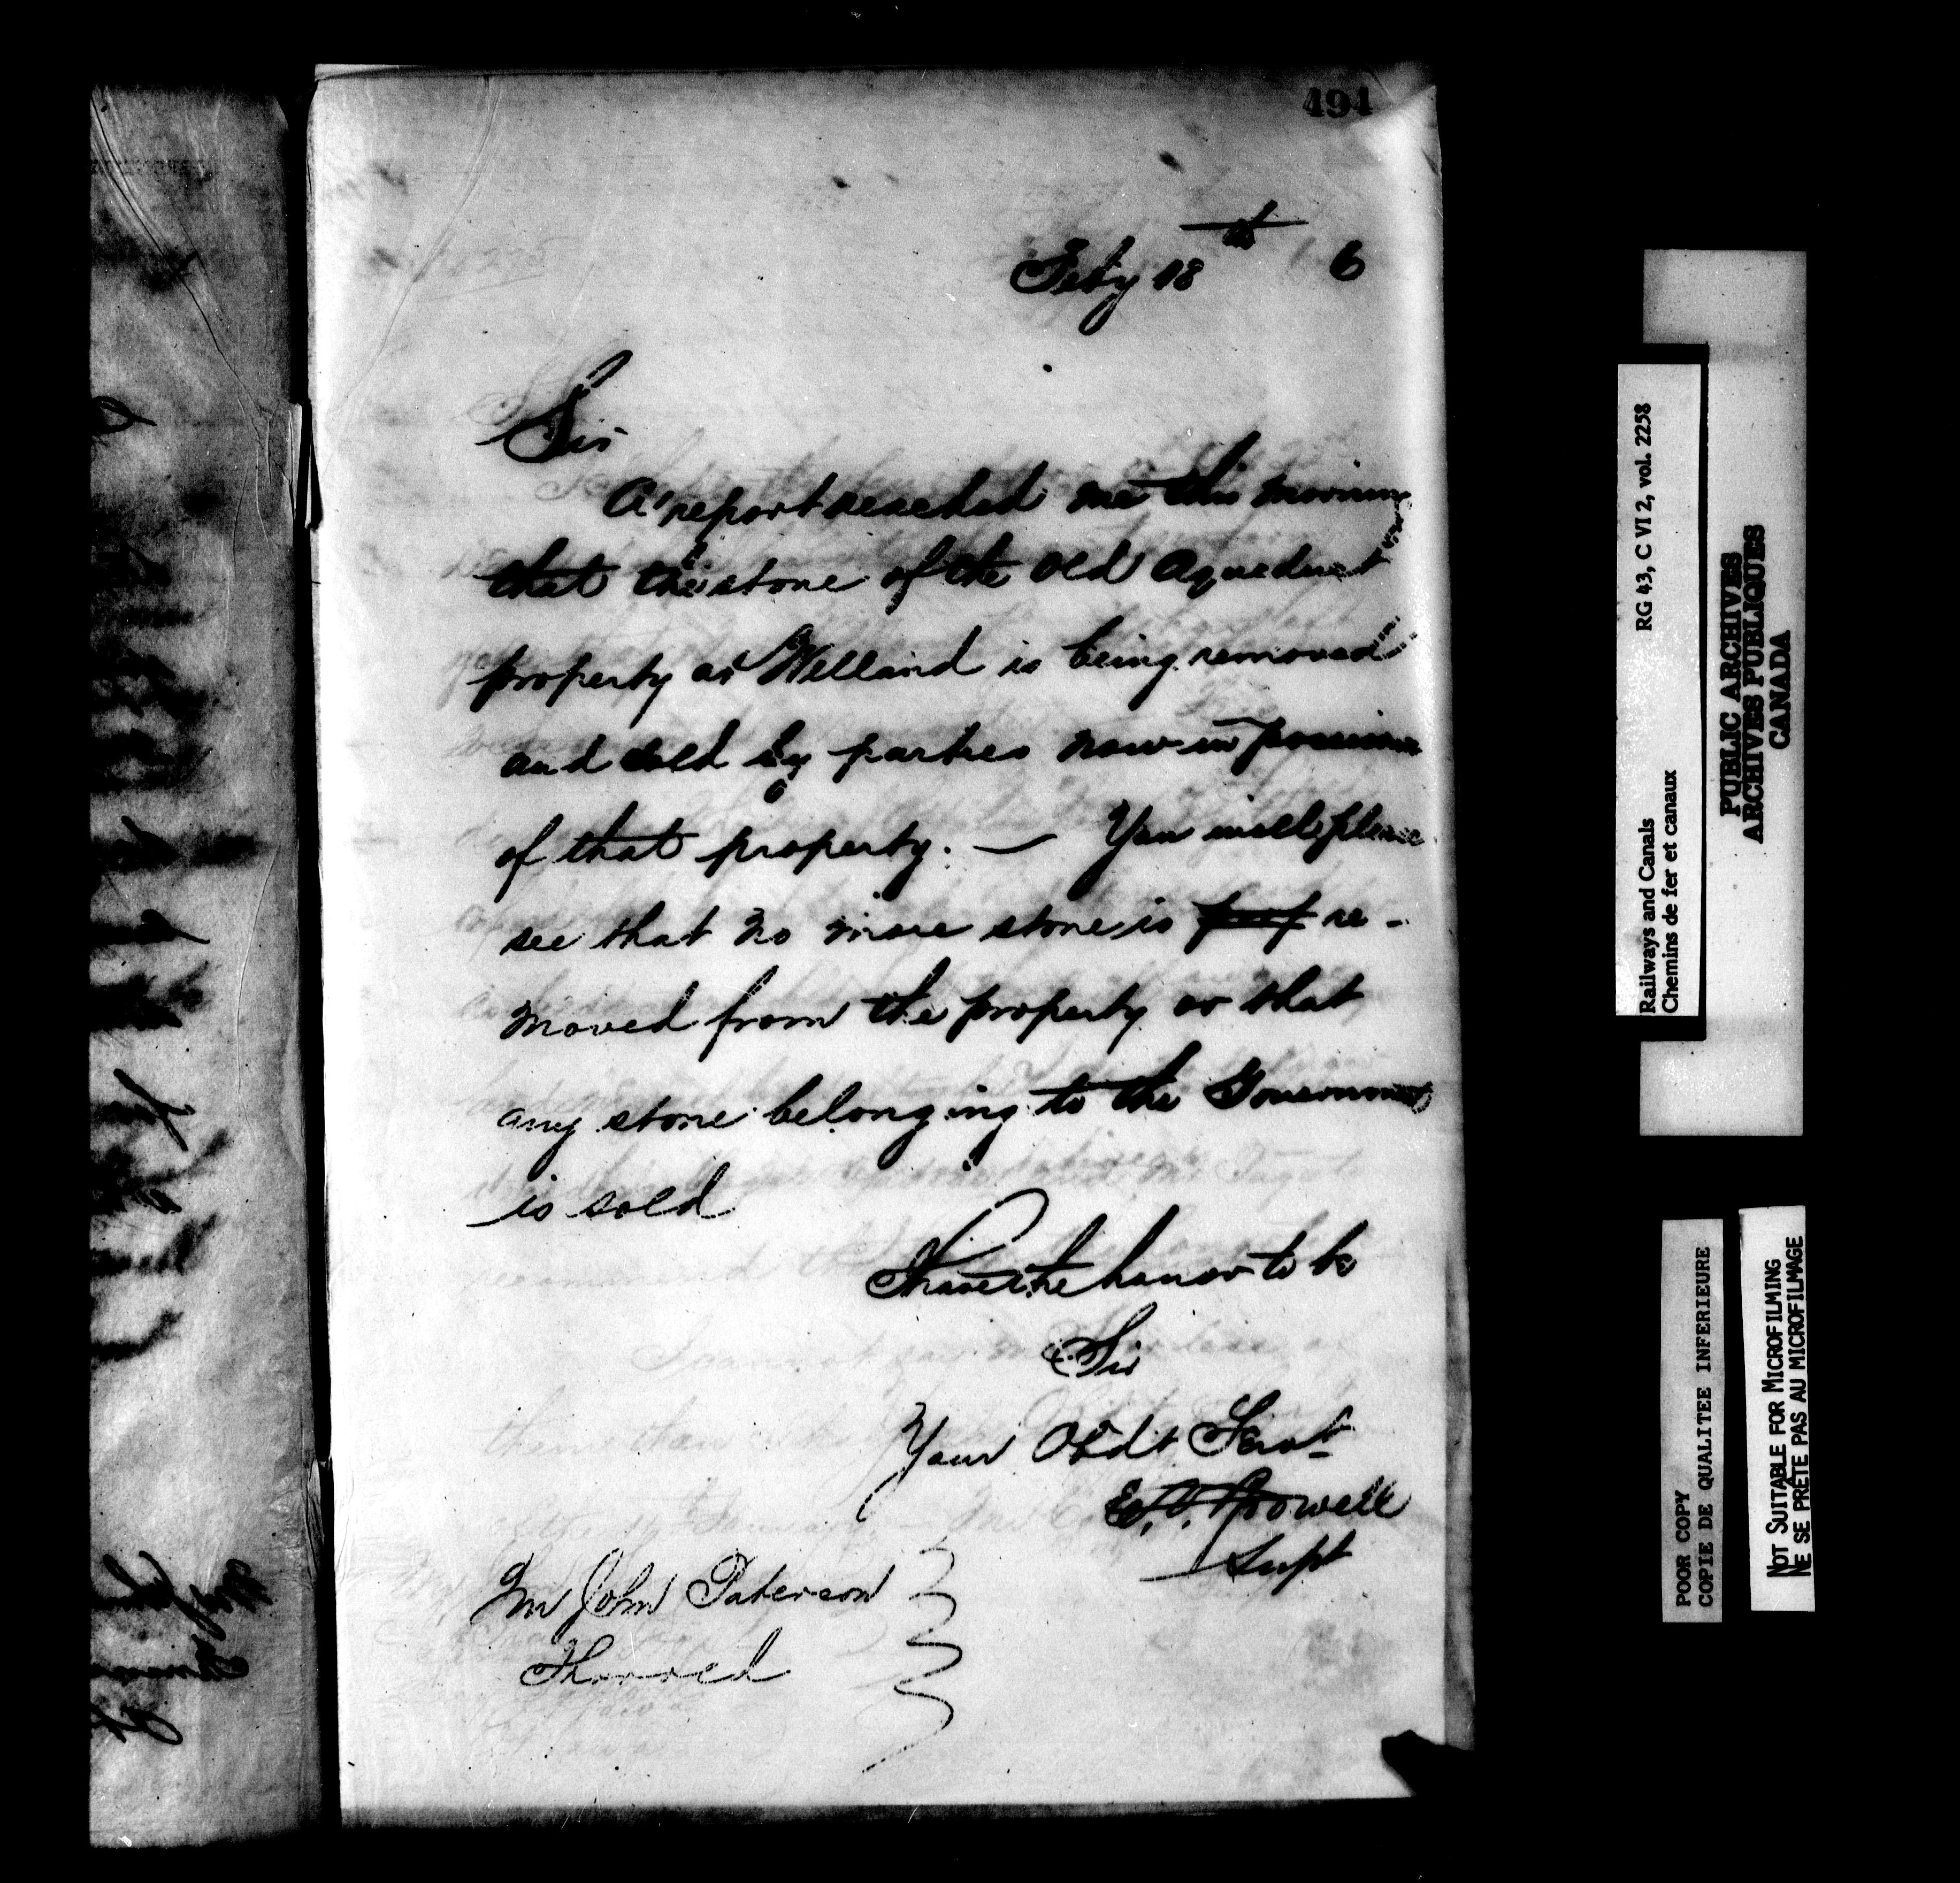 494
Feby 18th 6
Sir
A report reached me this morning
that the stone of the Old Aqueduct
property at Welland is being removed
and sold by parties now in possession
of that property. — You will please
see that no more stone is re-
moved from the property or that
any stone belonging to the Government
is sold
I have the honor to be
Sir
Your Obdt Servt
Supt
Mr John Paterson
Thorold
Railways and Canals RG 43, C VI 2, vol. 2258
Chemins de fer et canaux
PUBLIC ARCHIVES
ARCHIVES PUBLIQUES
CANADA
POOR COPY
COPIE DE QUALITEE INFERIEURE
NOT SUITABLE FOR MICROFILMING
NE SE PRÊTE PAS AU MICROFILMAGE